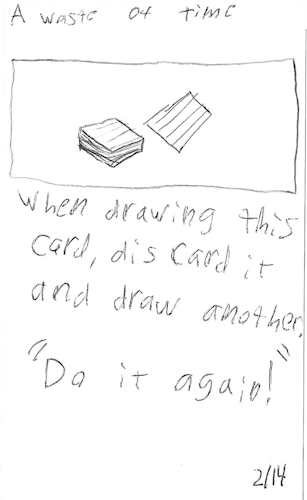 A waste of time
when drawing this
card, discard it
and draw another.
"Do it again!"
2/14